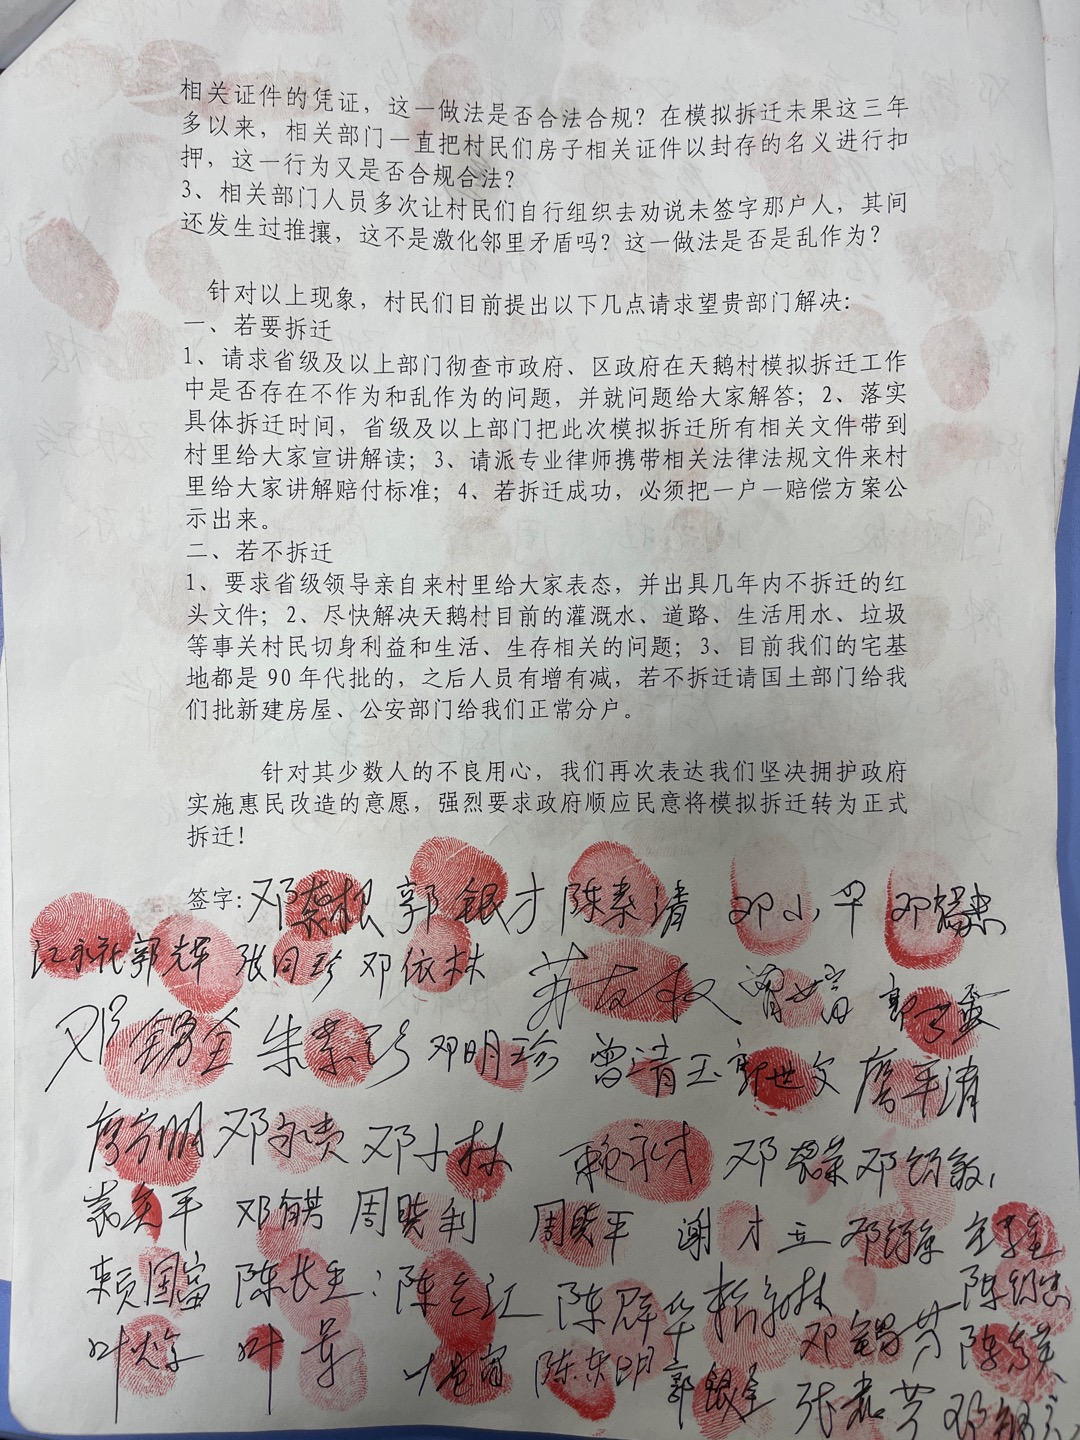 相关证件的凭证，这一做法是否合法合规？在模拟拆迁未果这三年
多以来，相关部门一直把村民们房子相关证件以封存的名义进行扣
押，这一行为又是否合规合法？
3、相关部门人员多次让村民们自行组织去劝说未签字那户人，其间
还发生过推攘，这不是激化邻里矛盾吗？这一做法是否是乱作为？
针对以上现象，村民们目前提出以下几点请求望贵部门解决：
一、若要拆迁
1、请求省级及以上部门彻查市政府、区政府在天鹅村模拟拆迁工作
中是否存在不作为和乱作为的问题，并就问题给大家解答；2、落实
具体拆迁时间，省级及以上部门把此次模拟拆迁所有相关文件带到
村里给大家宣讲解读；3、请派专业律师携带相关法律法规文件来村
里给大家讲解赔付标准；4、若拆迁成功，必须把一户一赔偿方案公
示出来。
二、若不拆迁
1、要求省级领导亲自来村里给大家表态，并出具几年内不拆迁的红
头文件；2、尽快解决天鹅村目前的灌溉水、道路、生活用水、垃圾
等事关村民切身利益和生活、生存相关的问题；3、目前我们的宅基
地都是 90 年代批的，之后人员有增有减，若不拆迁请国土部门给我
们批新建房屋、公安部门给我们正常分户。
针对其少数人的不良用心，我们再次表达我们坚决拥护政府
实施惠民改造的意愿，强烈要求政府顺应民意将模拟拆迁转为正式
拆迁！
签字：郭银才 陈素清 邓小华
郭光辉 张月珍 邓依林
邓明珍 曾清玉 郭世文 詹平清
邓小林 赖永才
周晓利 周晓平 谢才立
赖国富 陈长生 陈群华
陈东明 郭银全